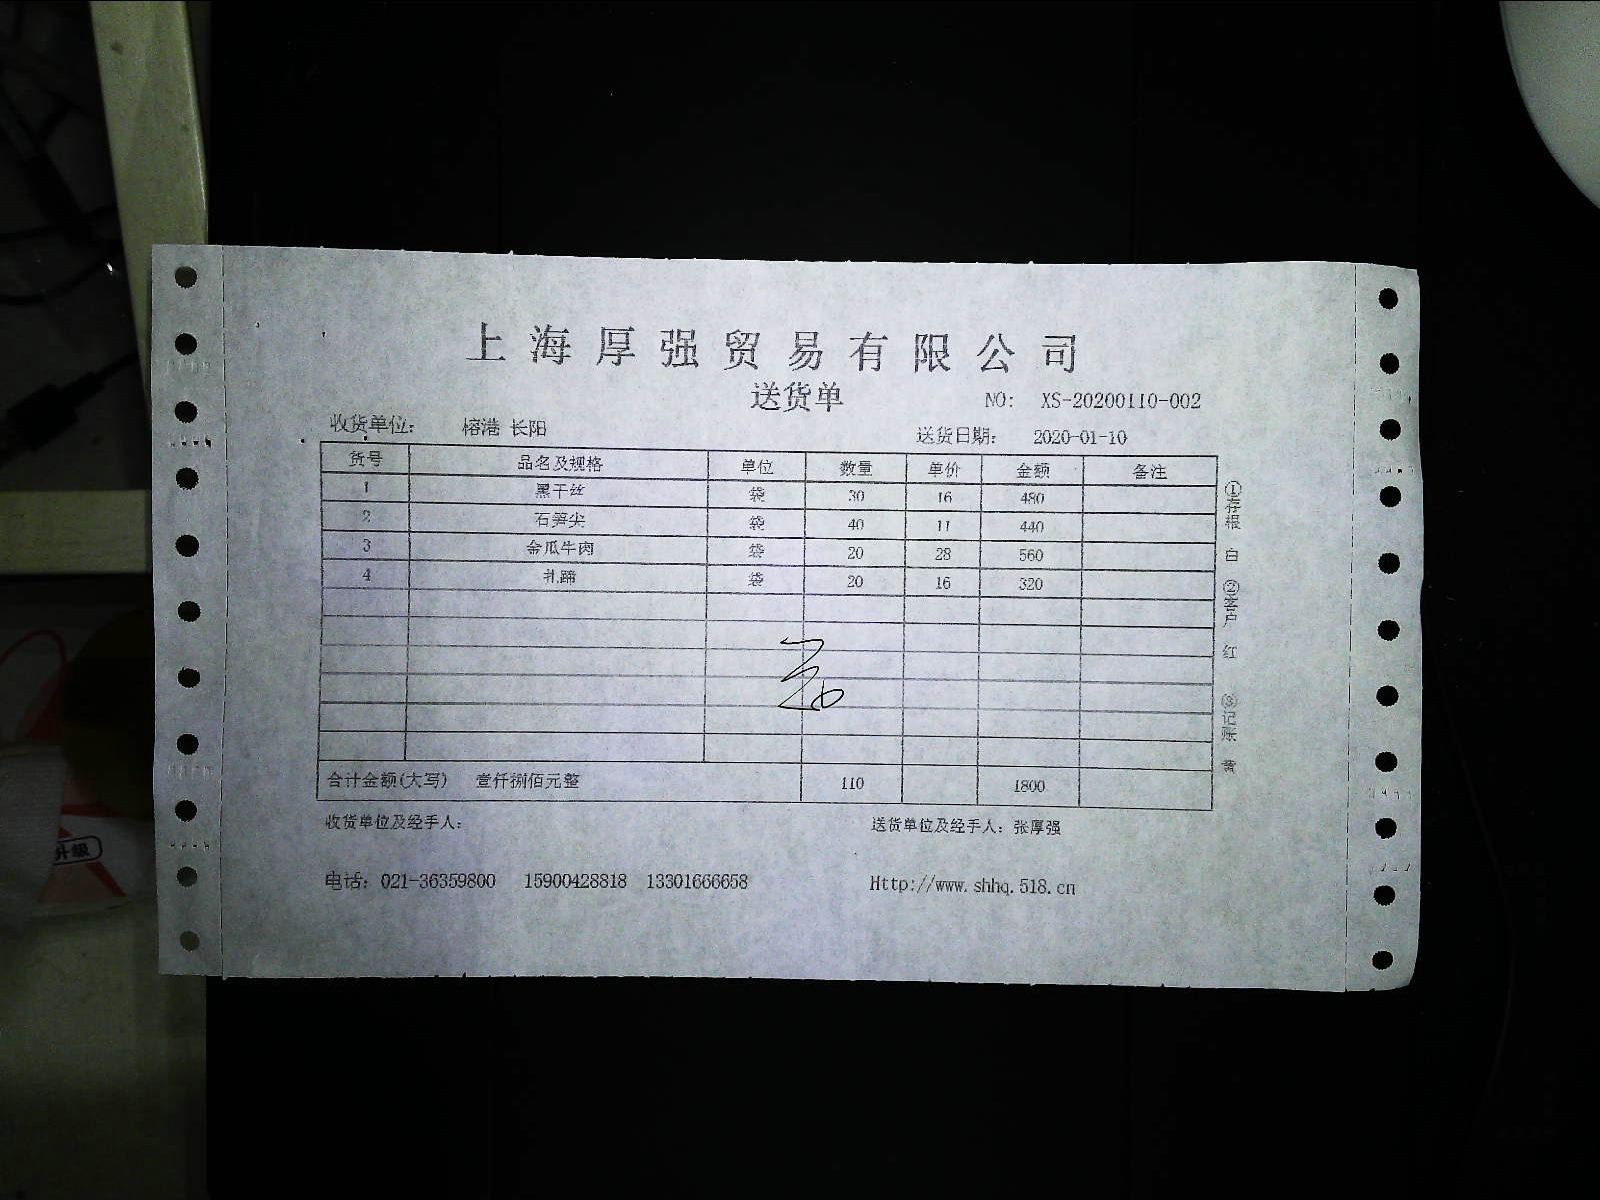 上海厚强贸易有限公司
送货单
NO: XS-20200110-002
收货单位: 榕港 长阳
送货日期: 2020-01-10
货号 品名及规格 单位 数量 单价 金额 备注
1 黑干丝 袋 30 16 480
2 石笋尖 袋 40 11 440
3 金瓜牛肉 袋 20 28 560
4 扎蹄 袋 20 16 320
合计金额(大写) 壹仟捌佰元整 110 1800
收货单位及经手人:
送货单位及经手人: 张厚强
电话: 021-36359800 15900428818 13301666658
Http://www.shhq.518.cn
①存根 白 ②客户 红 ③记账 黄
升级